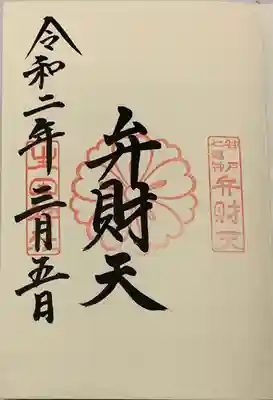 神戸
七福神
弁財天
弁財天
令和二年三月五日
生田神社